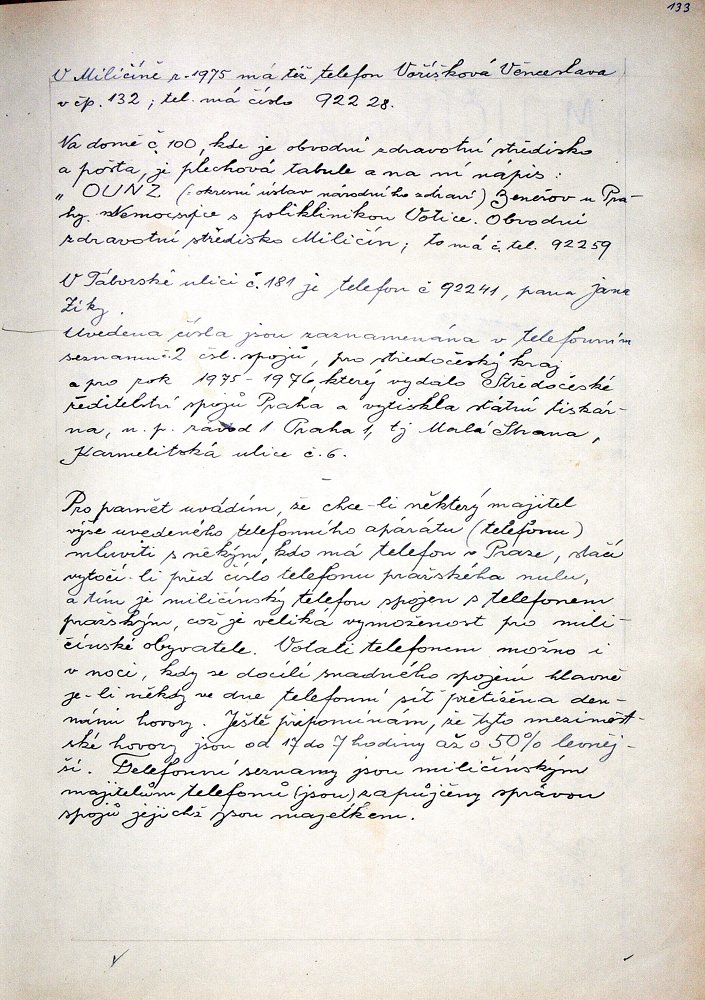 133
V Miličíně r. 1975 má též telefon Voříšková Věnceslava
v čp. 132; tel. má číslo 922 28.
Na domě č. 100, kde je obvodní zdravotní středisko
a pošta, je plechová tabule a na ní nápis:
„ OUNZ (-okresní ústav národního zdraví) Benešov u Pra-
hy. Nemocnice s poliklinikou Votice. Obvodní
zdravotní středisko Miličín; to má č. tel. 92259
V Táborské ulici č. 181 je telefon č 92241, pana Jana
Ziky.
Uvedena čísla jsou zaznamenána v telefonním
seznamu č. 2 čsl. spojů, pro středočeský kraj
a pro rok 1975-1976, který vydalo Středočeské
ředitelství spojů Praha a vytiskla státní tiskár-
na, n. p. závod 1 Praha 1, tj Malá Strana,
Karmelitská ulice č. 6.
Pro pamět uvádím, že chce-li některý majitel
výše uvedeného telefonního aparátu (telefonu)
mluviti s někým, kdo má telefon v Praze, stačí
vytočí-li před číslo telefonu pražského nulu,
a tím je miličínský telefon spojen s telefonem
pražským, což je veliká vymoženost pro mili-
čínské obyvatele. Volati telefonem možno i
v noci, kdy se docílí snadného spojení hlavně
je-li někdy ve dne telefonní síť přetížena den-
ními hovory. Ještě připomínám, že tyto meziměst-
ské hovory jsou od 17 do 7 hodiny až o 50% levněj-
ší. Telefonní seznamy jsou miličínským
majitelům telefonů (jsou) zapůjčeny správou
spojů jejichž jsou majetkem.